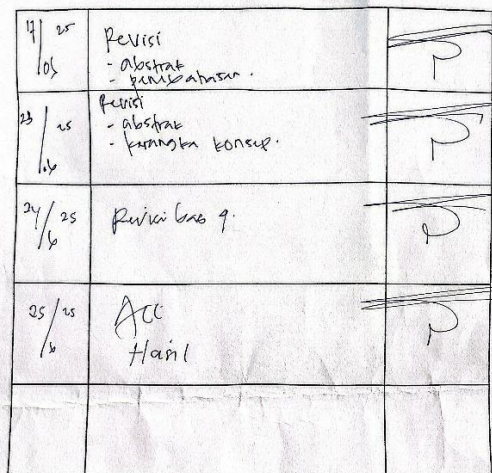 17/06 25
Revisi
- abstrak
- pembahasan.
23/6 25
Revisi
- abstrak
- karangka konsep.
24/6 25
Revisi bab 4.
25/6 25
Acc
Hasil